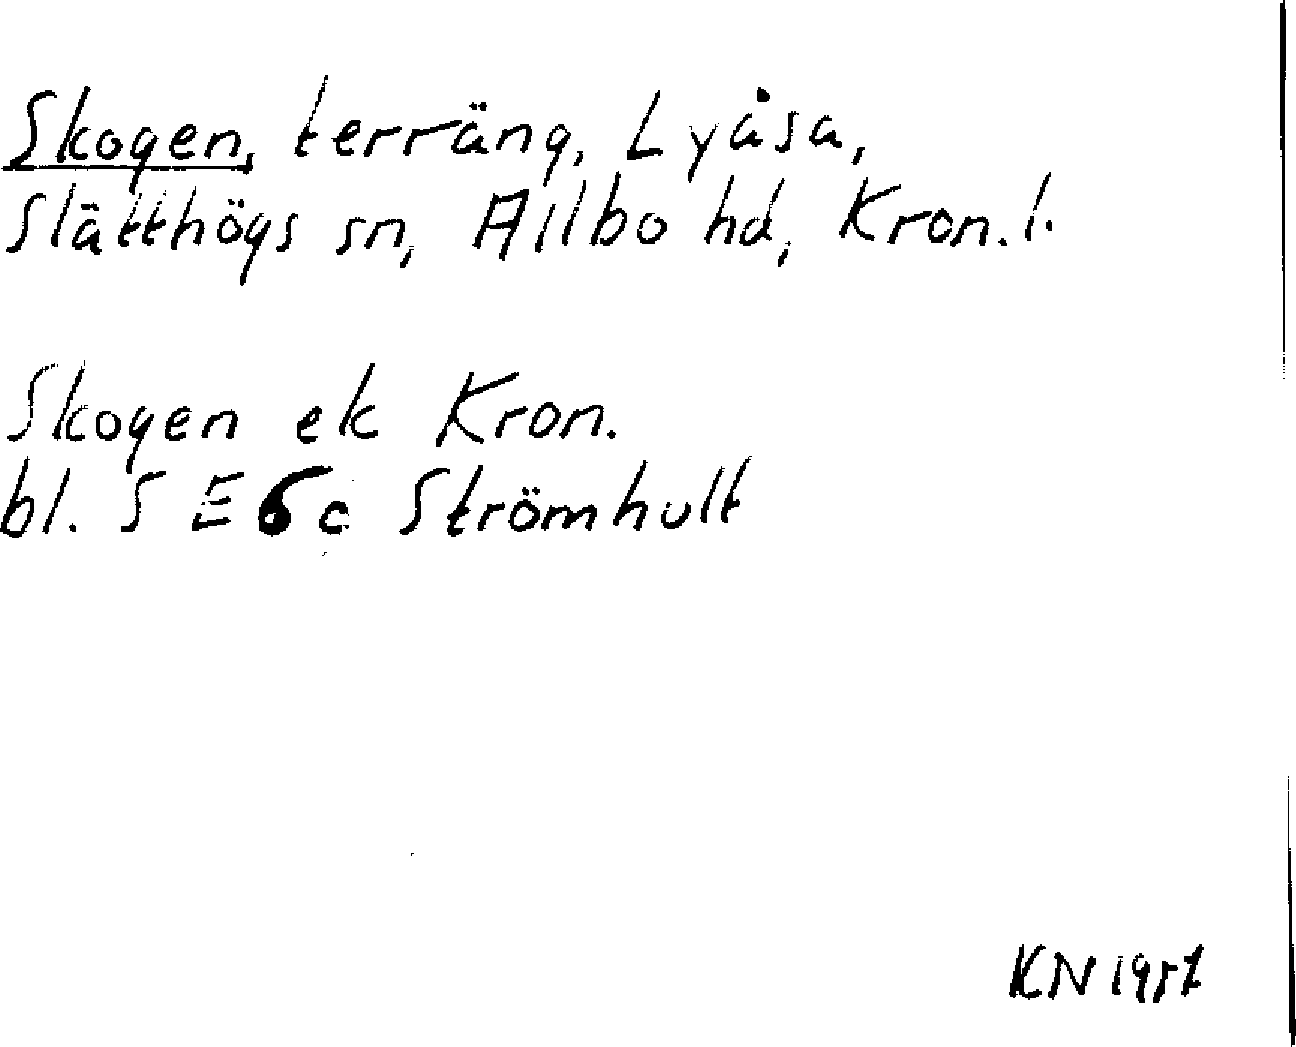 Skogen, terräng, Lyåsa,
Slätthögs sn, Allbo hd, Kron. l.
Skogen ek Kron.
bl. 5 E 6 c Strömhult
KN